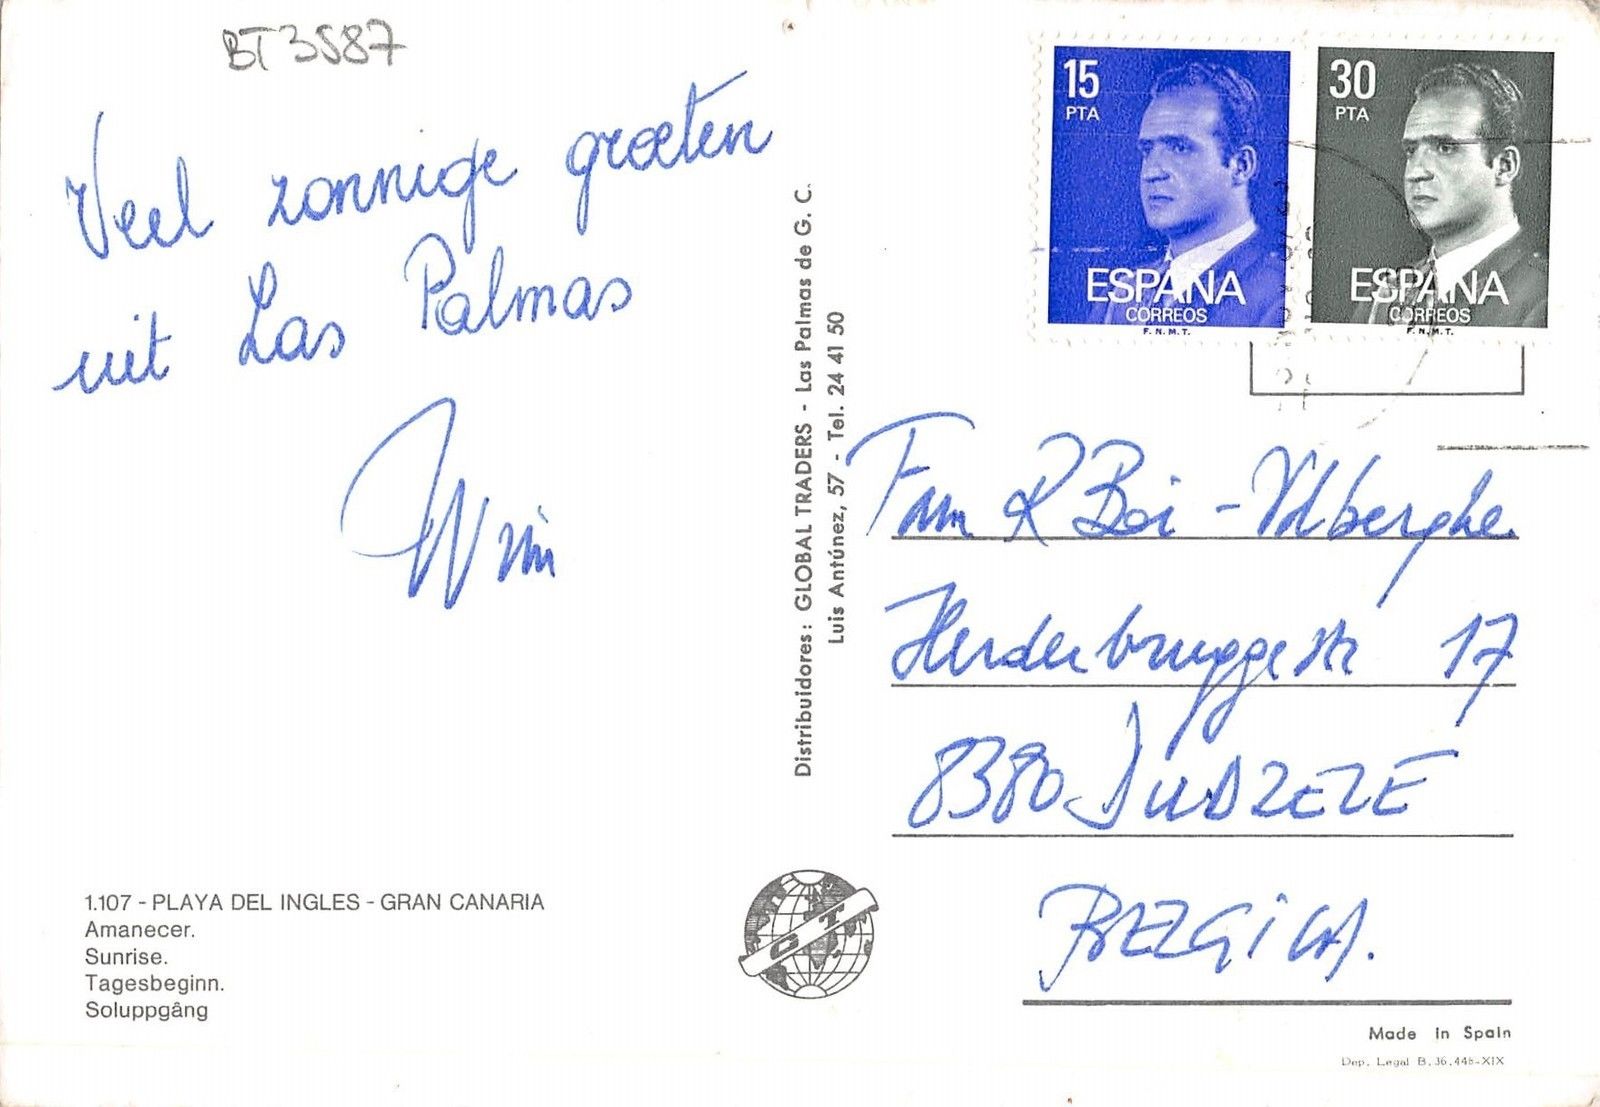 BT3587
Veel zonnige groeten
uit Las Palmas
Wim
1.107 - PLAYA DEL INGLES - GRAN CANARIA
Amanecer.
Sunrise.
Tagesbeginn.
Soluppgång
Distribuidores: GLOBAL TRADERS - Las Palmas de G. C.
Luis Antúnez, 57 - Tel. 24 41 50
GT
15
PTA
ESPAÑA
CORREOS
F.N.M.T.
30
PTA
ESPAÑA
CORREOS
F.N.M.T.
Fam R
17
8380 DUDZELE
BELGICA.
Made in Spain
Dep. Legal B. 36.448-XIX